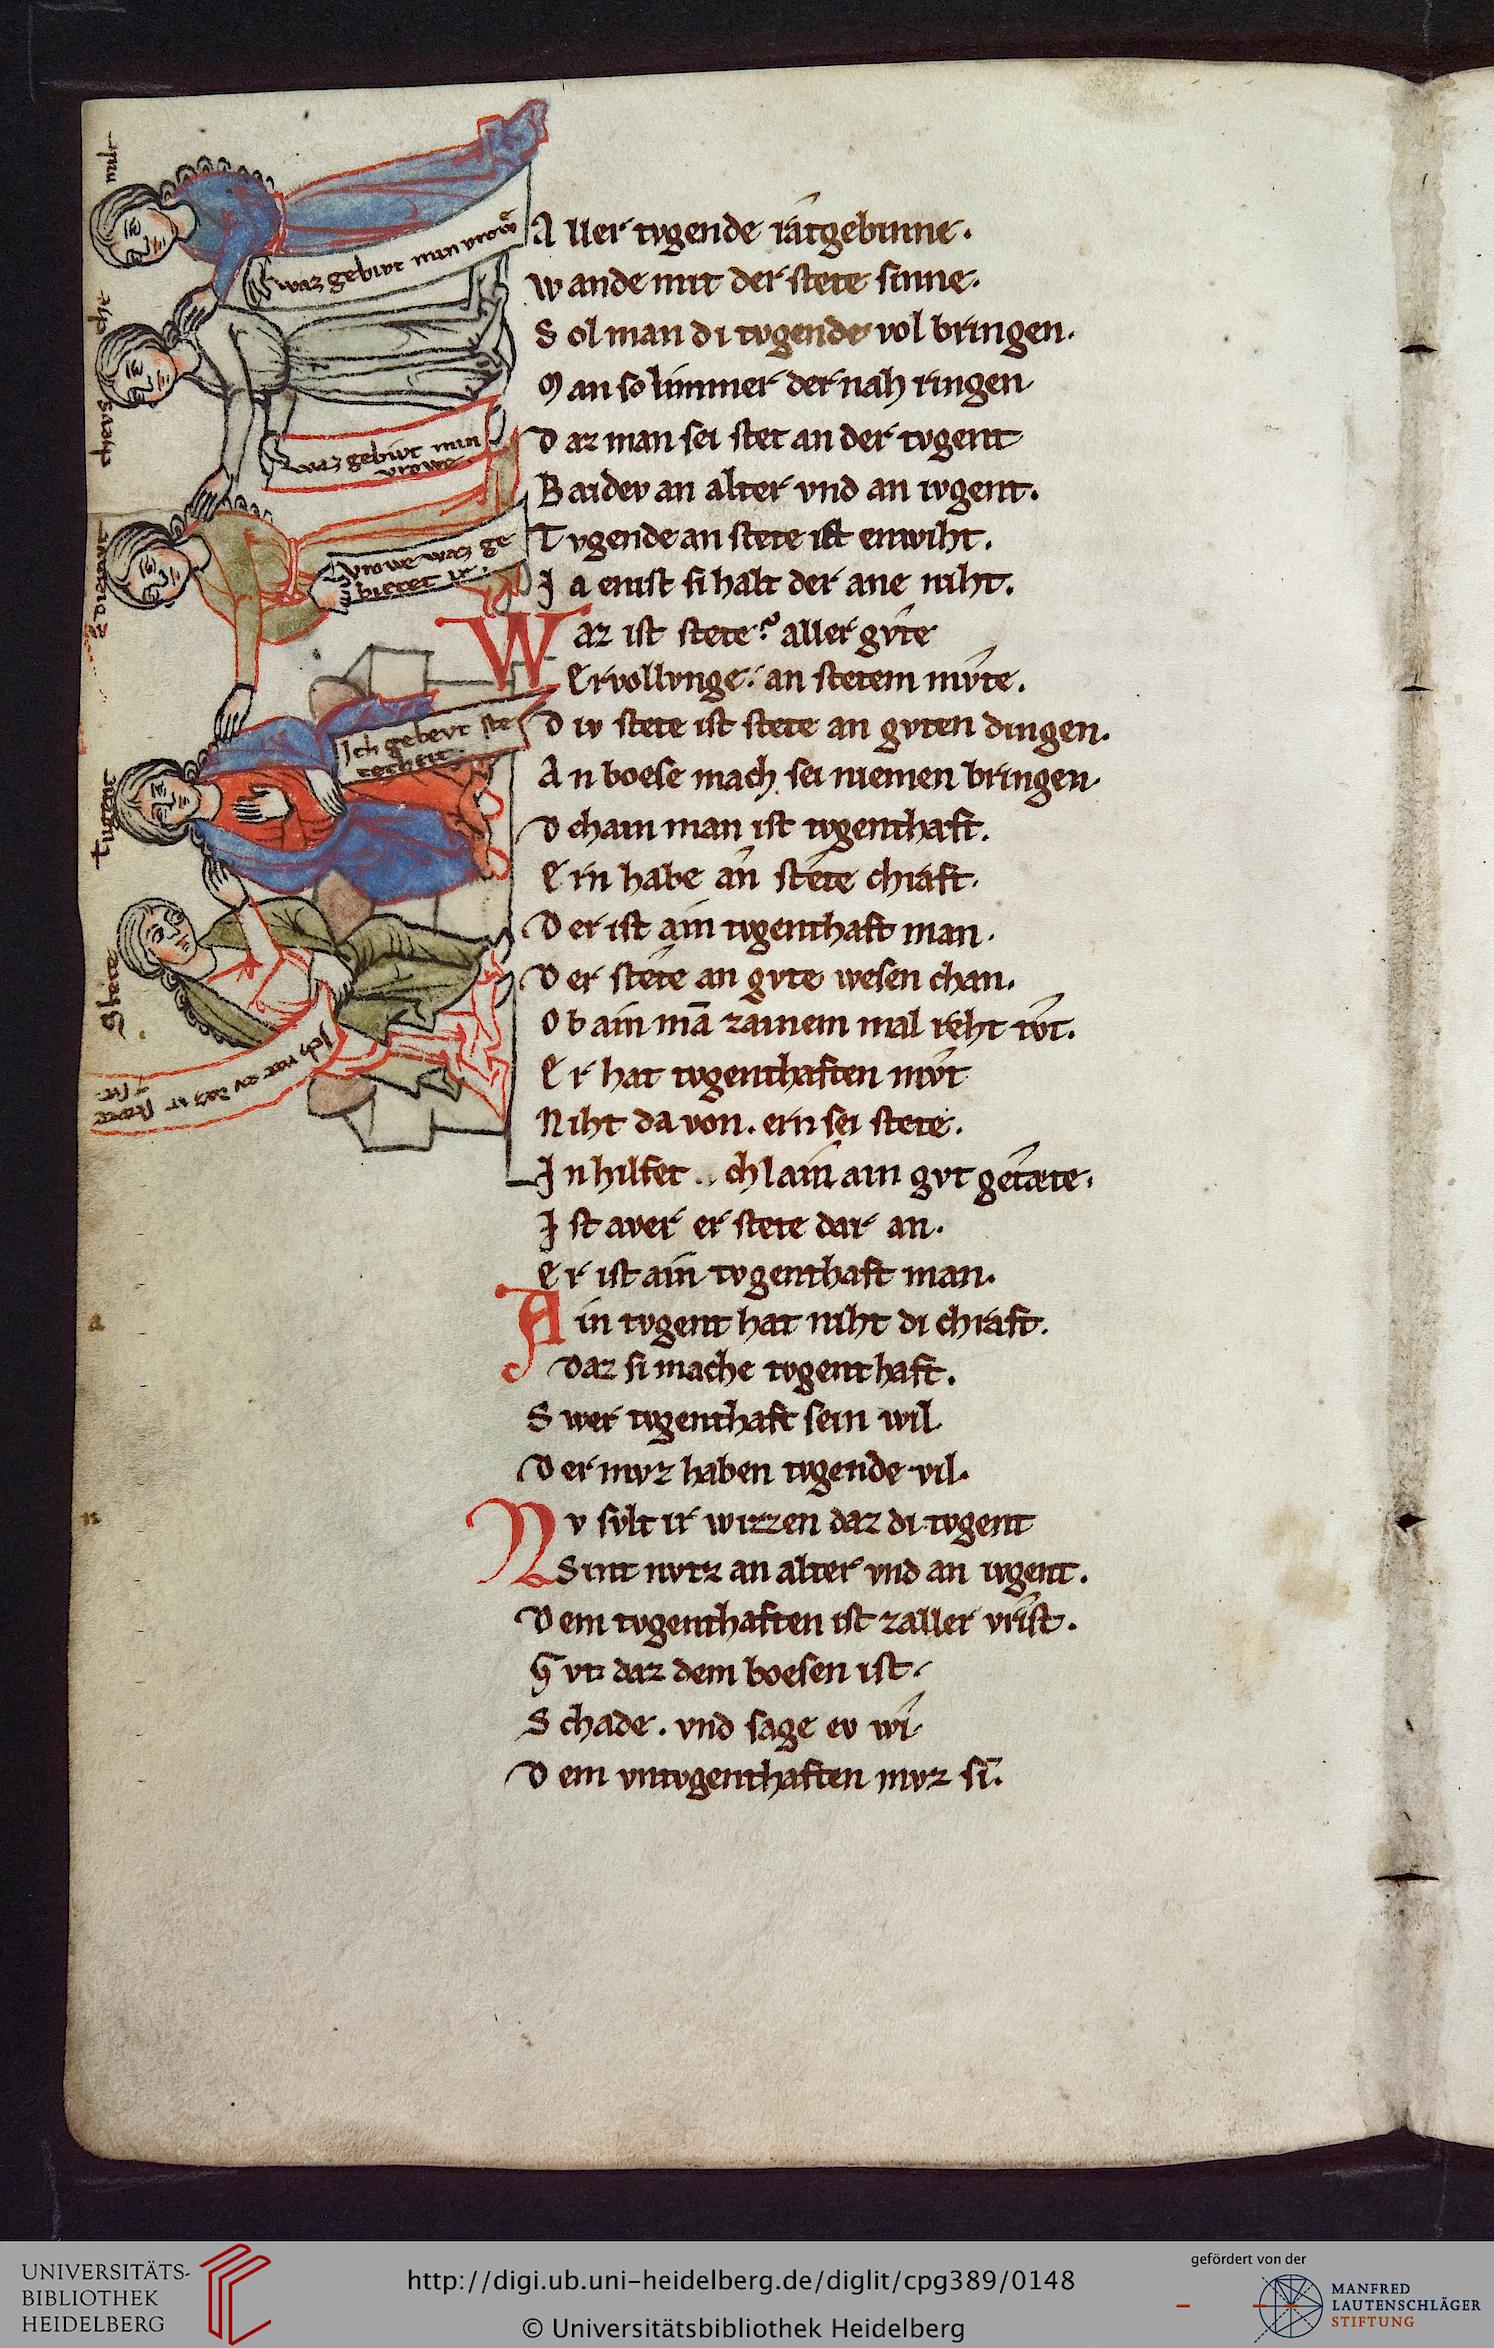 Aller tvgende ratgebinne.
Wande mit der stete sinne.
Sol man di tvgende vol bringen.
Man sol immer der nah ringen
Daz man sei stet an der tvgent
Baidev an alter vnd an ivgent.
Tvgende an stete ist enwiht.
Ja enist si halt der ane niht.
Waz ist stete? aller gvte
Ervollvnge. an stetem mvte.
Div stete ist stete an gvten dingen.
An boese mach sei niemen bringen.
Dchain man ist tvgenthaft.
Ern habe an stete chraft.
Der ist ain tvgenthaft man.
Der stete an gvte wesen chan.
Ob ain mā zainem mal reht tvt.
Er hat tvgenthaften mvt
Niht da von. ern sei stete.
In hilfet chlain ain gvt getæte.
Ist aver er stete dar an.
Er ist ain tvgenthaft man.
Ain tvgent hat niht di chraft.
Daz si mache tvgenthaft.
Swer tvgenthaft sein wil
Der mvz haben tvgende vil.
Nv svlt ir wizzen daz di tvgent
Sint nvtz an alter vnd an ivgent.
Dem tvgenthaften ist zaller vrist.
Gvt daz dem boesen ist.
Schade. vnd sage ev wi
Dem vntvgenthaften mvz si.
milt
chevsche
warhait
Tugent
Stete
Swaz gebivt min vrowe
Swaz gebivt min
vrowe
Vrowe waz ge
bietet ir.
Ich gebevt ste
techeit
a
n
UNIVERSITÄTS-
BIBLIOTHEK
HEIDELBERG
http://digi.ub.uni-heidelberg.de/diglit/cpg389/0148
© Universitätsbibliothek Heidelberg
gefördert von der
MANFRED
LAUTENSCHLÄGER
STIFTUNG